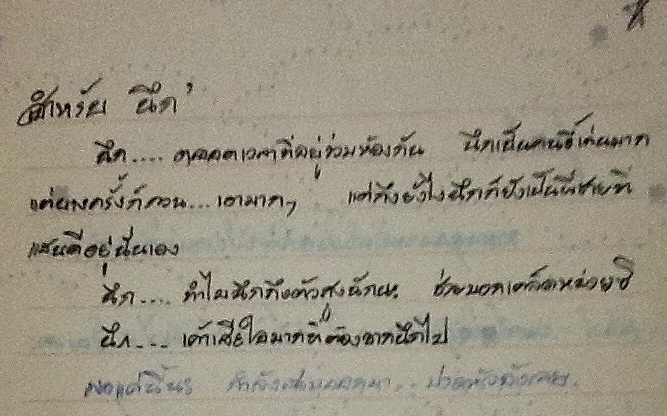 สำหรับ นึก'
นึก.... ตลอดเวลาที่อยู่ร่วมห้องกัน นึกเป็นคนขี้เล่นมาก
แต่บางครั้งก็กวน... เอามากๆ แต่ถึงยังไงนึกก็ยังเป็นพี่ชายที่
แสนดีอยู่นั่นเอง
นึก.... ทำไมนึกถึงตัวสูงนักนะ ช่วยบอกเค้าหน่อยซิ
นึก.... เค้าเสียใจมากที่ต้องจากนึกไป
พอแค่นี้นะ